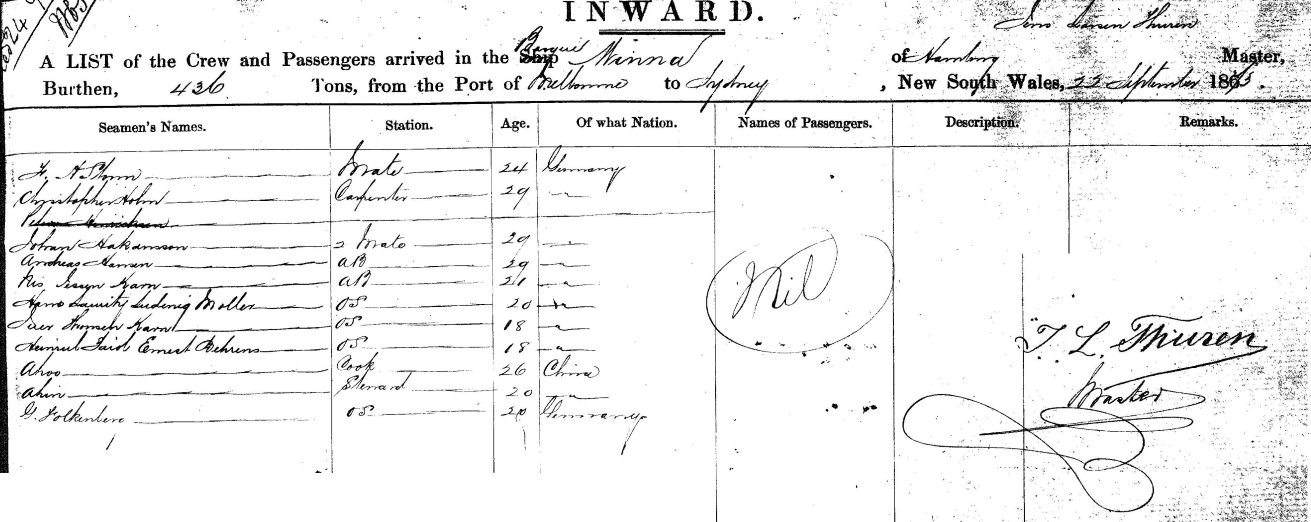 INWARD.
Jens Larsen Thuren
A LIST of the Crew and Passengers arrived in the Ship Barque Minna of Hamburg Master,
Burthen, 436 Tons, from the Port of Melbourne to Sydney, New South Wales, 22 September 186
Seamen's Names. Station. Age. Of what Nation. Names of Passengers. Description. Remarks.
Mate 24 Germany
Christopher Holm Carpenter 29 "
Johan Hakanson 2 Mate 29 "
Andreas Hansen AB 29 "
AB 21 "
Hans Lauritz Ludewig Moller OS 20 "
Thomsen OS 18 "
Ernest Behrens OS 18 "
Ahoo Cook 26 China
Ahin Steward 20 "
G. Folkenberg OS 20 Germany
Nil
T. L. Thuren
Master